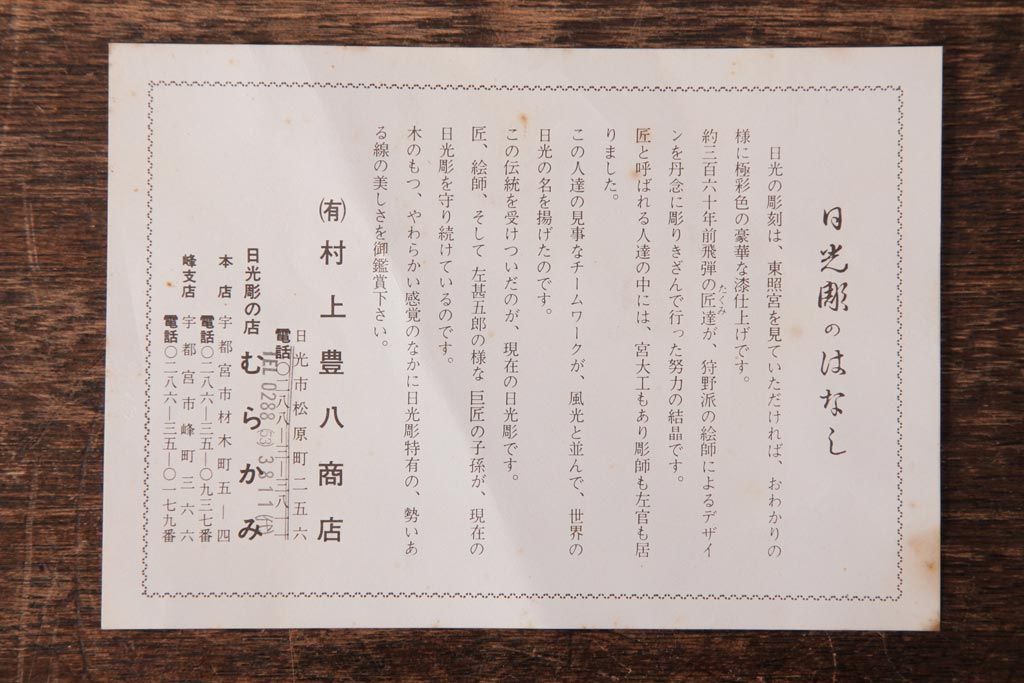 日光彫のはなし
日光の彫刻は、東照宮を見ていただければ、おわかりの
様に極彩色の豪華な漆仕上げです。
約三百六十年前飛弾の匠達が、狩野派の絵師によるデザイ
たくみ
ンを丹念に彫りきざんで行った努力の結晶です。
匠と呼ばれる人達の中には、宮大工もあり彫師も左官も居
りました。
この人達の見事なチームワークが、風光と並んで、世界の
日光の名を揚げたのです。
この伝統を受けついだのが、現在の日光彫です。
匠、絵師、そして左甚五郎の様な巨匠の子孫が、現在の
日光彫を守り続けているのです。
木のもつ、やわらかい感覚のなかに日光彫特有の、勢いあ
る線の美しさを御鑑賞下さい。
㈲村上豊八商店
日光市松原町二五六
電話〇二八八―三―三八一一
TEL 0288 (53) 3811 ㈹
日光彫の店 むらかみ
本店 宇都宮市材木町五―四
電話〇二八六―三五―〇九三七番
峰支店 宇都宮市峰町三六六
電話〇二八六―三五―〇一七九番